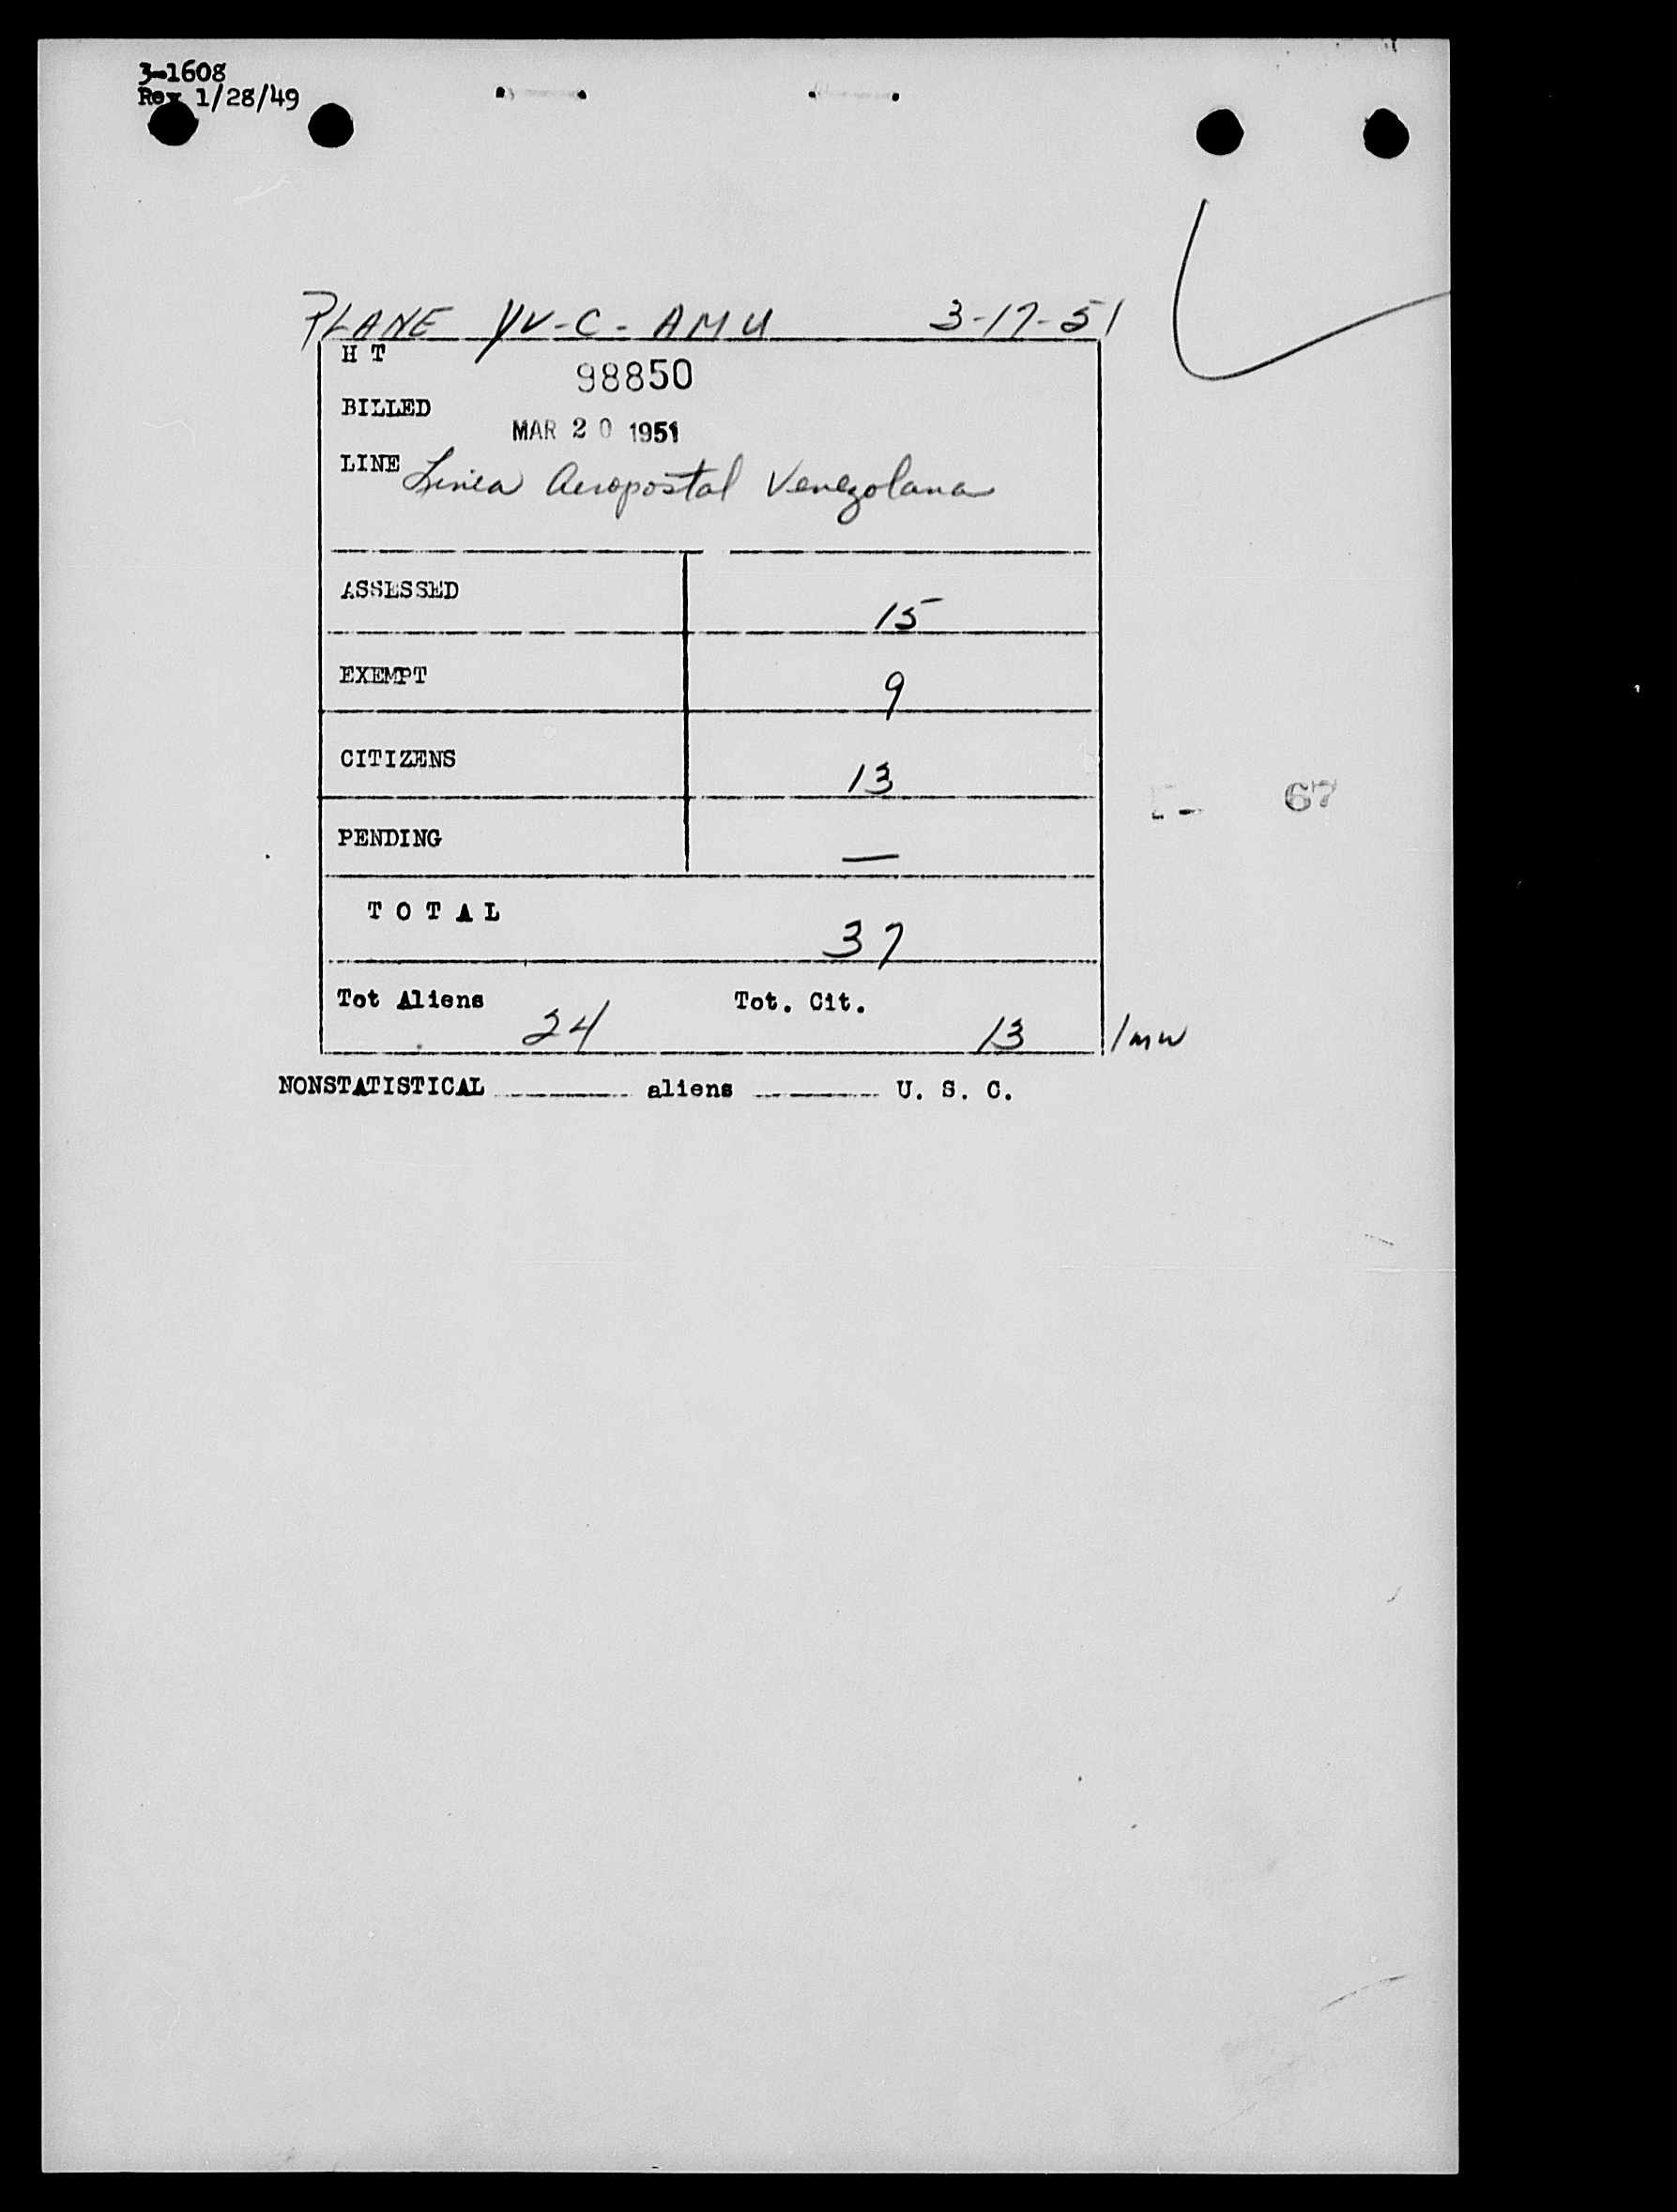 3-1608
Rev 1/28/49
PLANE YV-C-AMU 3-17-51
H T
98850
BILLED
MAR 20 1951
LINE Linea Aeropostal Venezolana
ASSESSED 15
EXEMPT 9
CITIZENS 13
67
PENDING —
T O T A L 37
Tot Aliens 24 Tot. Cit. 13 /mw
NONSTATISTICAL ______ aliens ______ U. S. C.